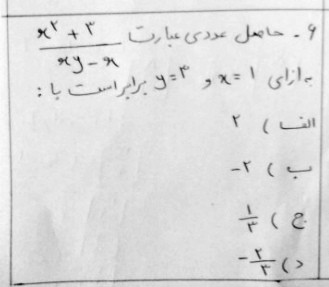 ۶ - حاصل عددی عبارت (x² + ۳)/(xy - x)
به ازای x = ۱ و y = ۳ برابر است با :
الف ) ۲
ب ) -۲
ج ) ۱/۳
د ) -۲/۳